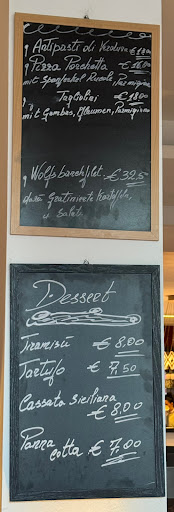 Antipasti di Verdura €
Pizza Porchetta €
mit Rucola,
Tagliolini € 18.00
mit Gambas, Pflaumen, Parmigiano
Wolfsbarschfilet € 32.5
dazu Gratinierte Kartoffeln,
u Salat
Dessert
Tiramisù € 8.00
Tartufo € 7,50
Cassata Siciliana
€ 8,00
Panna
cotta € 7,00